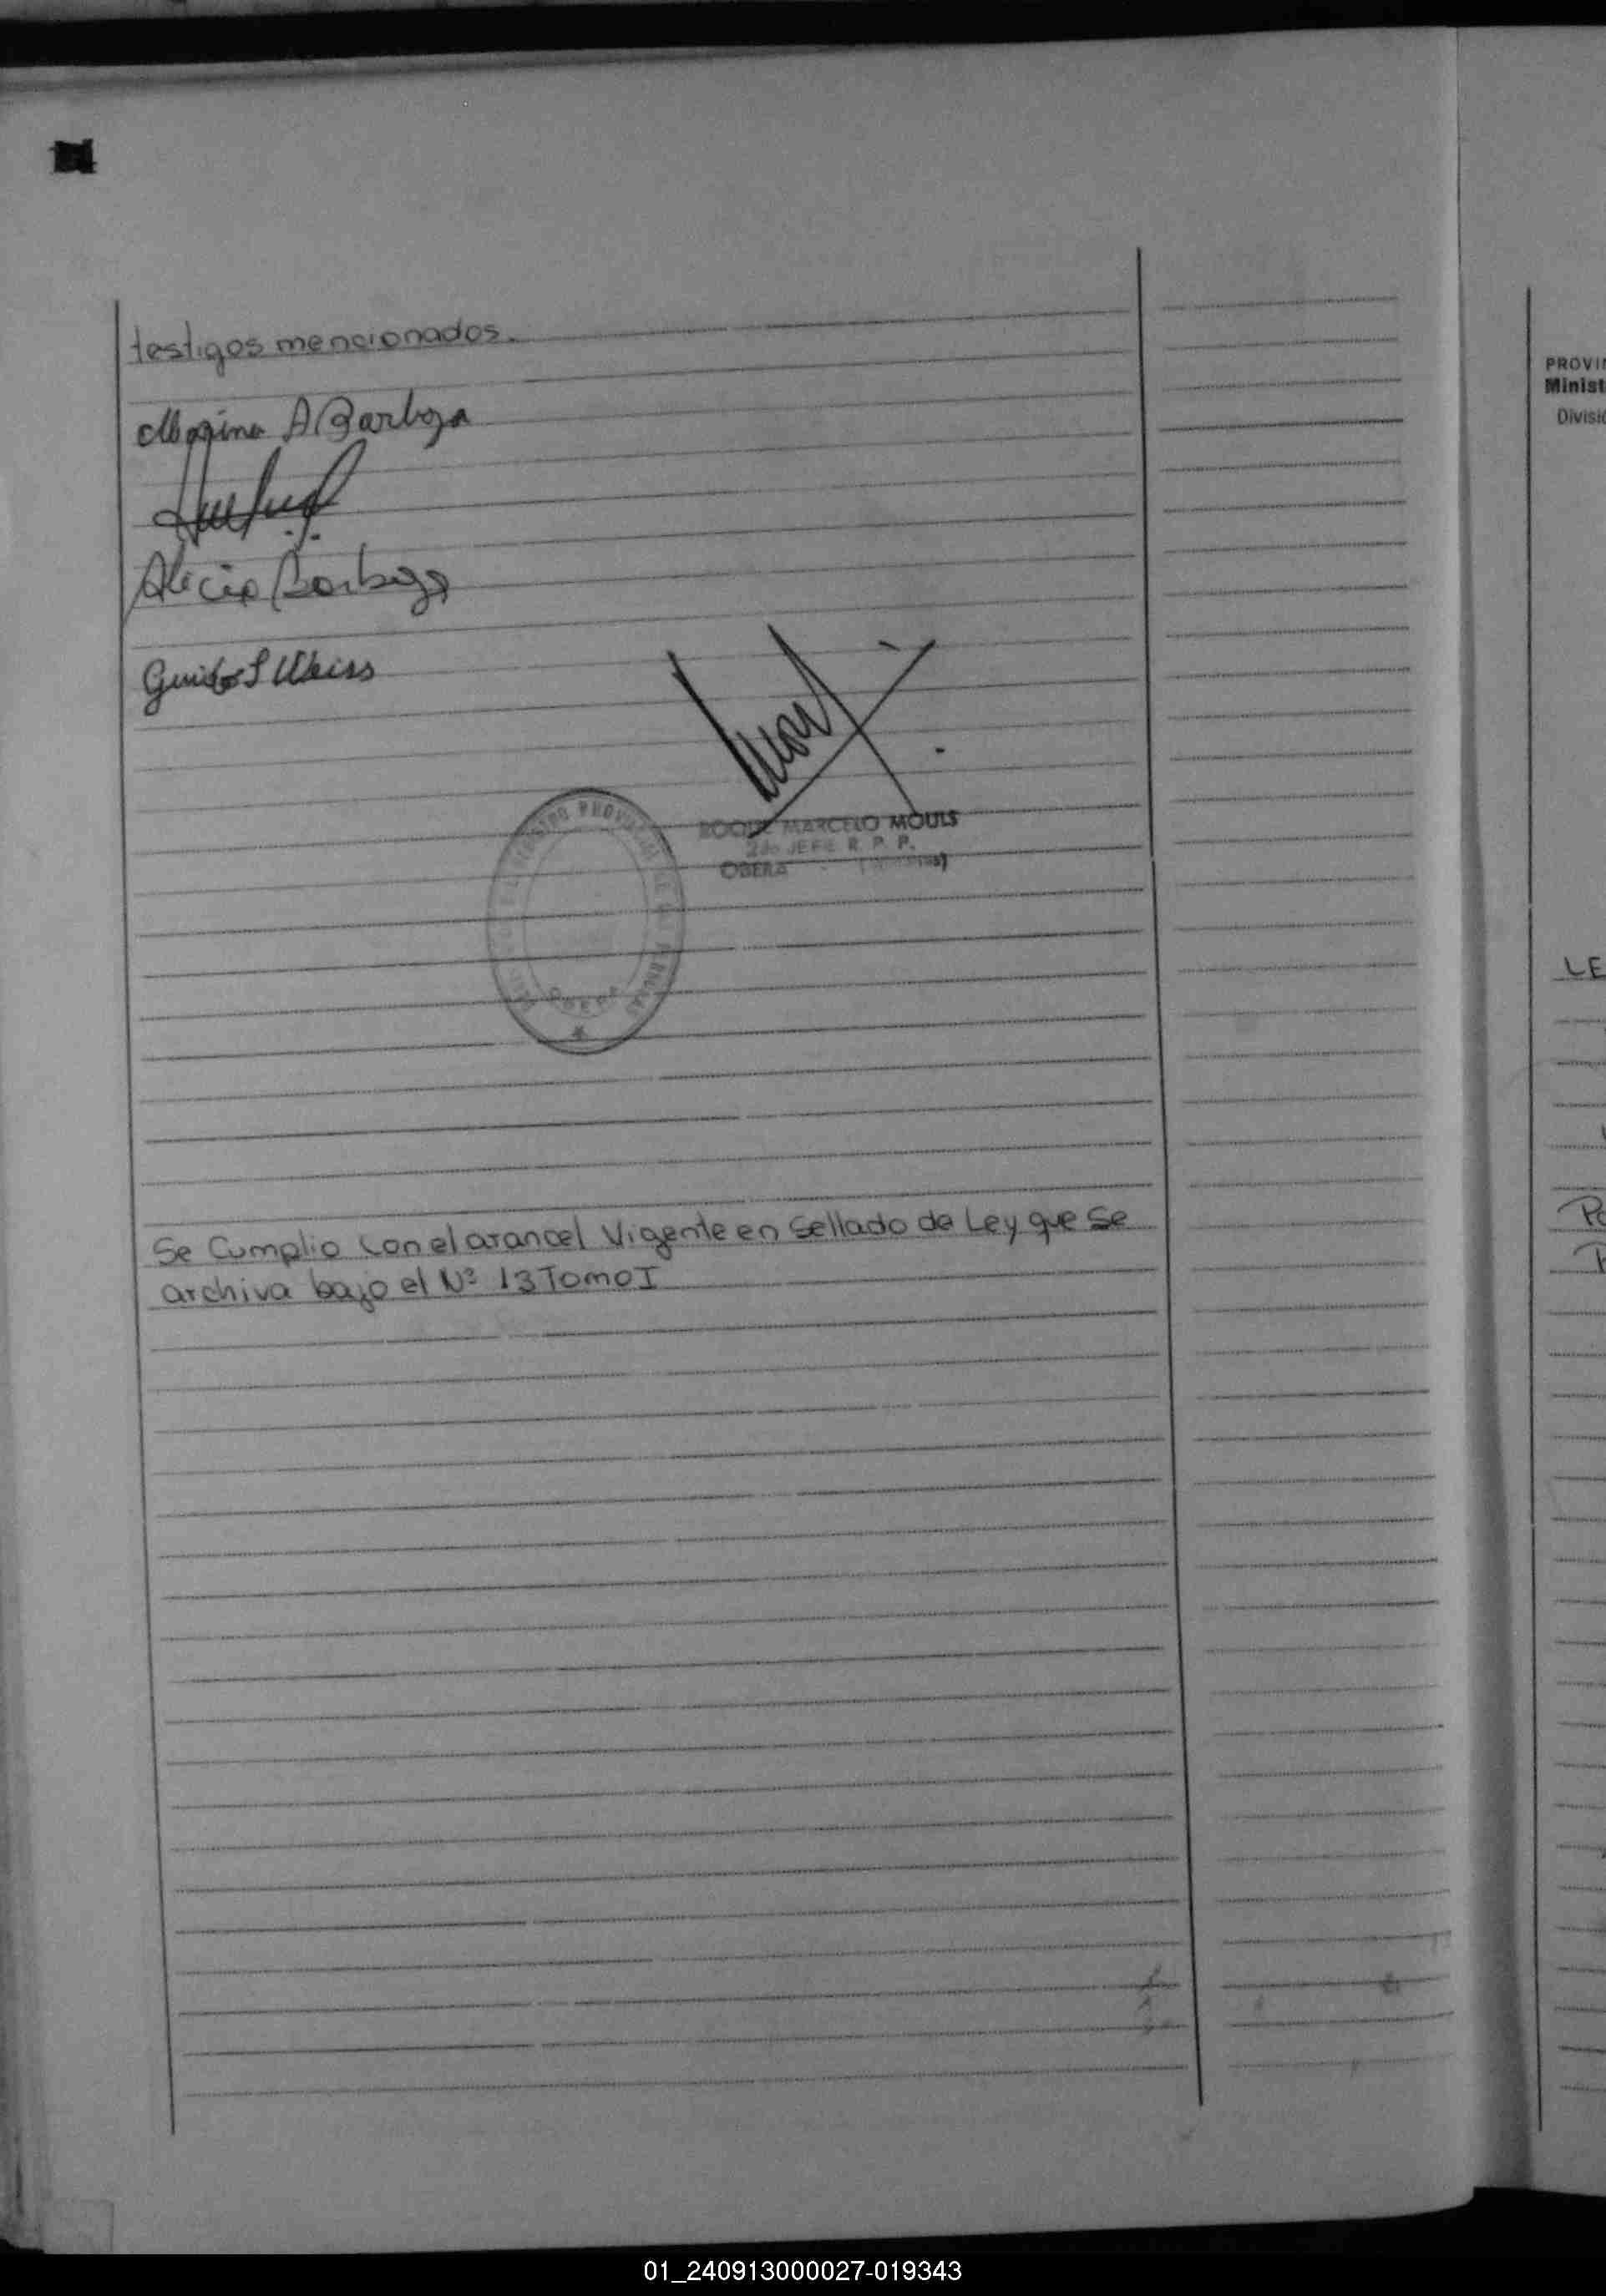 testigos mencionados.
A Barboza
Alicia Barboza
Guido S Weiss
ROQUE MARCELO MOULS
2do JEFE R. P. P.
OBERA (Misiones)
REGISTRO PROVINCIAL DE LAS PERSONAS
OBERA
Se Cumplio con el arancel Vigente en Sellado de Ley que se
archiva bajo el Nº 13 Tomo I
PROVIN
Minist
Divisió
LE
Po
01_240913000027-019343